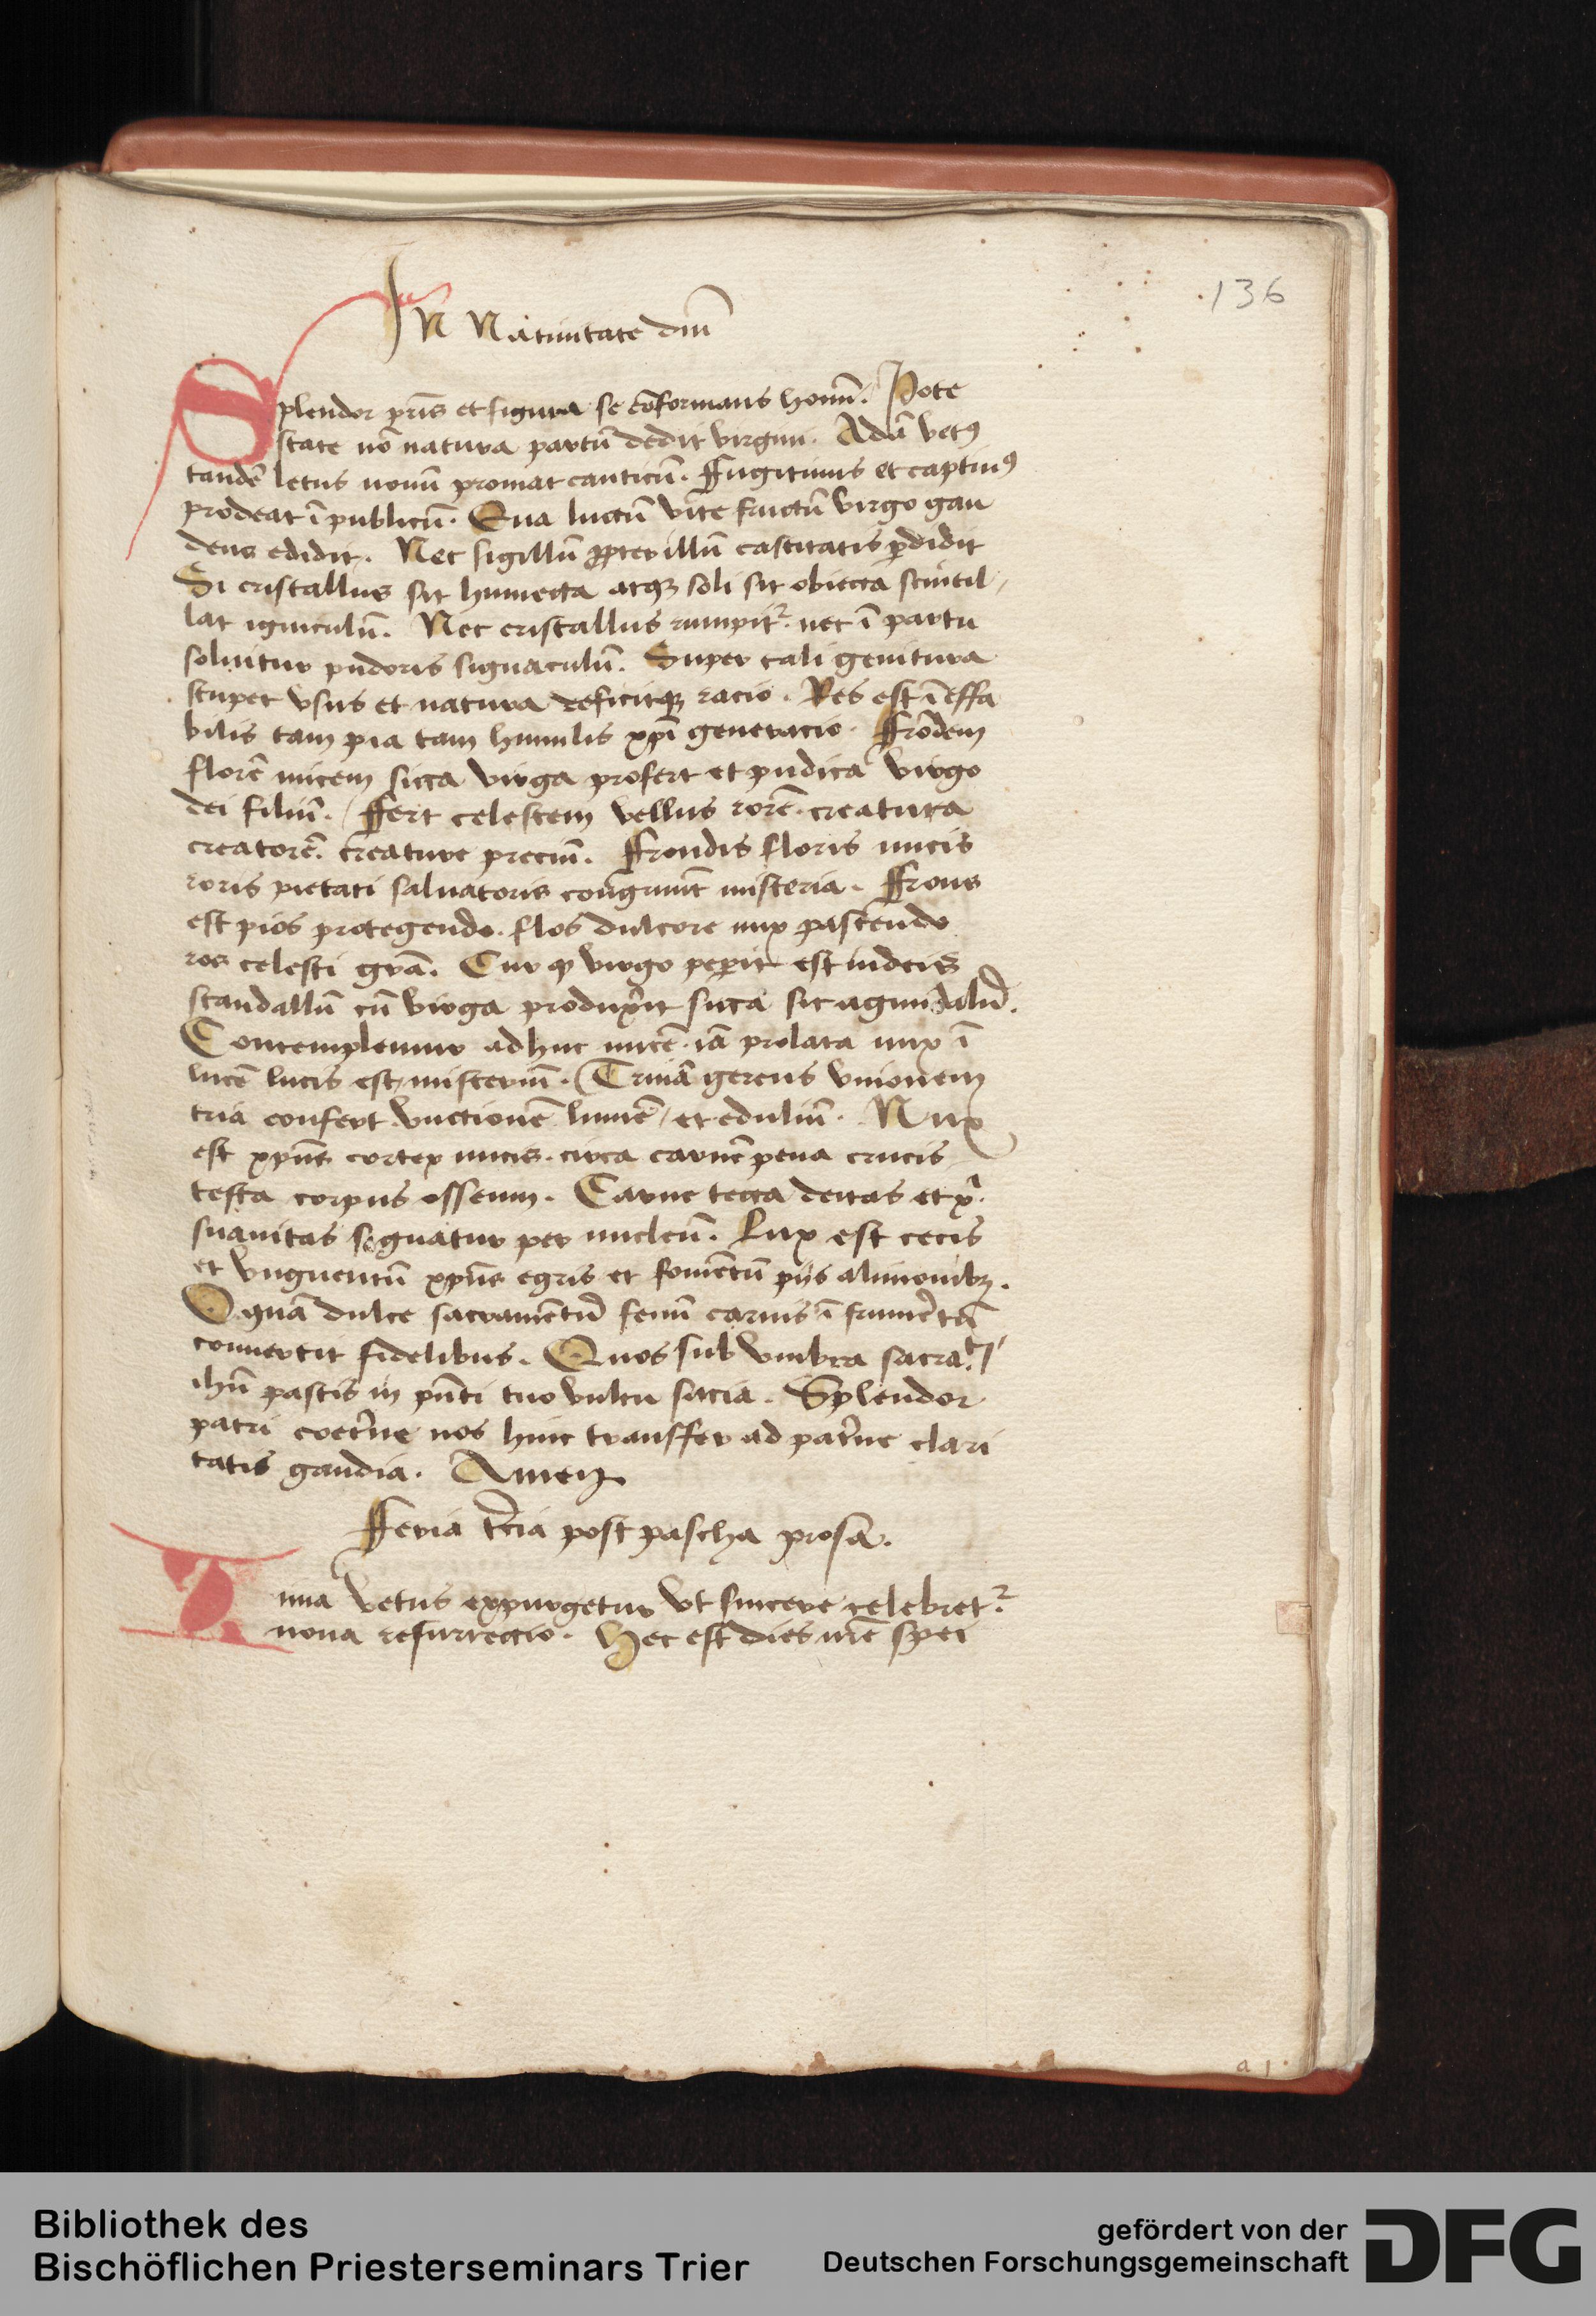 136
In Natiuitate dni̅
Splendor pr̅is et figura se co̅formans homi̅. Pote
state no̅ natura partu̅ dedit virgini. Ada̅ vetꝰ
tande̅ letus nouu̅ promat canticu̅. Ffugitiuus et captiuꝰ
prodeat i̅ publicu̅. Eua luctu̅ vite fructu̅ virgo gau
dens edidit. Nec sigillu̅ ꝓpter illu̅ castitatis ꝑdidit
Si cristallus sit humecta atqꝫ soli sit obiecta scintil
lat igniculu̅. Nec cristallus rumpit᷑ nec i̅ partu
soluitur pudoris signaculu̅. Super tali genitura
stupet vsus et natura deficitqꝫ racio. Res est i̅effa
bilis tam pia tam humilis xp̅i generacio. Ffro̅dem
flore̅ nucem sicca virga profert et pudica virgo
dei filiu̅. Ffert celestem vellus rore̅ creatura
creatore̅ creature preciu̅. Ffrondis floris nucis
roris pietati saluatoris congruu̅t misteria. Ffrons
est pios protegendo flos dulcore nux pascendo
ros celesti gr̅a. Cur ꝙ virgo peperit est iudeis
scandallu̅ cu̅ virga produxerit sicca sic amigdalu̅.
Contemplemur adhuc nuce̅ ia̅ prolata nux i̅
luce̅ lucis est misteriu̅. Trina̅ gerens vnionem
tria confert vnctione̅ lume̅ et eduliu̅. Nux
est xpu̅s cortex nucis circa carne̅ pena crucis
testa corpus osseum. Carne tecta deitas et xp̅i
suauitas signatur per nucleu̅. Lux est cecis
et vnguentu̅ xpu̅s egris et fome̅tu̅ piis alimonibꝫ.
O qua̅ dulce sacrame̅tu̅ fenu̅ carnis i̅ frume̅tu̅
conuertit fidelibus. Quos sub vmbra sacra̅ti
ihu̅ pastis in pn̅ti tuo vultu sacia. Splendor
patri coet̅ne nos hinc transffer ad pat̅ne clari
tatis gaudia. Amen
Fferia t̅cia post pascha prosa.
Zima vetus expurgetur vt sincere celebret᷑
noua resurrectio. Hec est dies nr̅e spei
a 1
Bibliothek des
Bischöflichen Priesterseminars Trier
gefördert von der
Deutschen Forschungsgemeinschaft
DFG